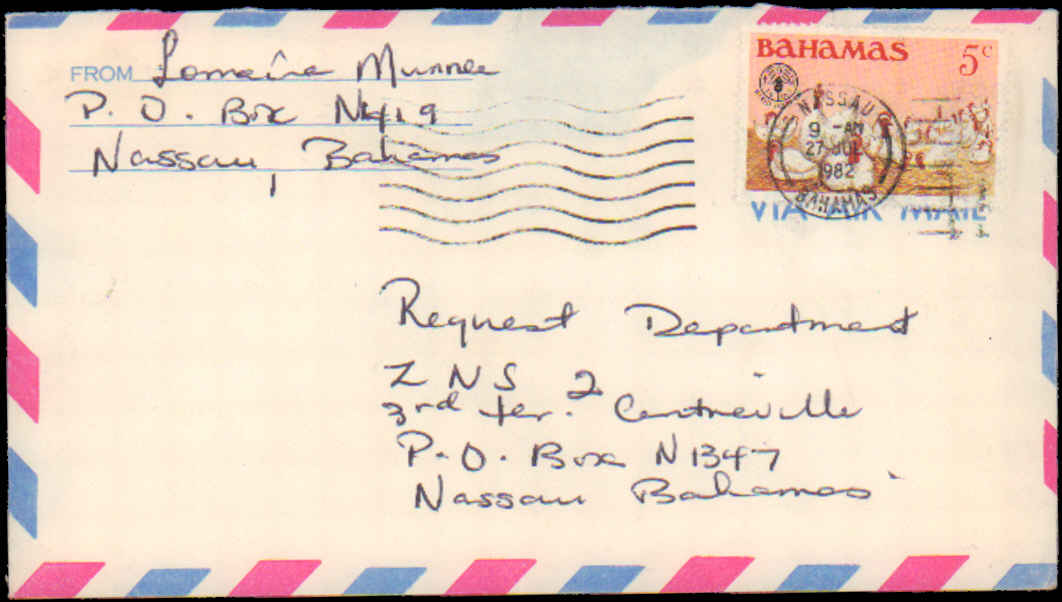 FROM Lorraine Munroe
P. O. Box N419
Nassau, Bahamas
BAHAMAS 5c
NASSAU
9 - AM
27 JUL
1982
BAHAMAS
VIA AIR MAIL
Request Department
ZNS 2
3rd ter. Centreville
P. O. Box N1347
Nassau Bahamas